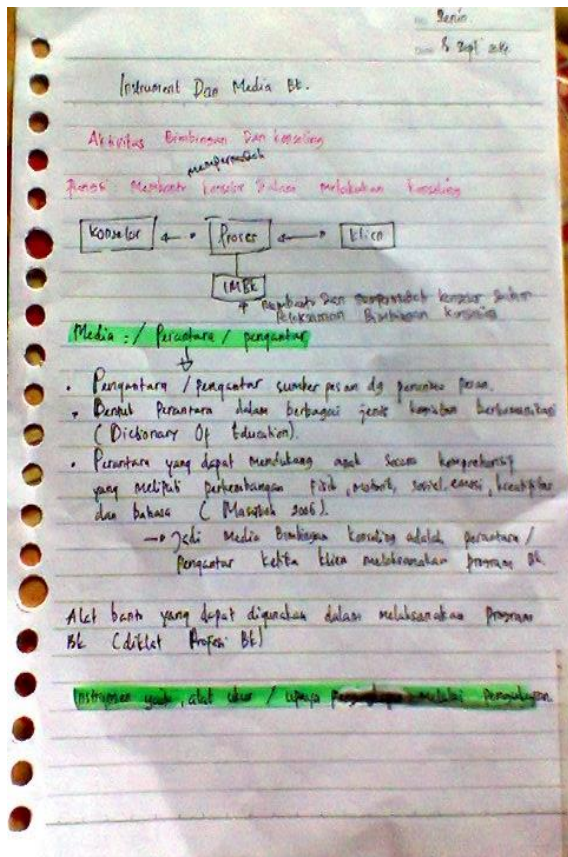 No. Senin
Date 8 Sept 2014
Instrument Dan Media Bk.
Aktivitas Bimbingan Dan konseling
mempermudah
Fungsi : Membantu konselor Dalam melakukan konseling
konselor Proses klien
IMBK
membantu dan mempermudah konselor dalam
Pelaksanaan Bimbingan konseling
Media : / Perantara / pengantar
• Pengantara / pengantar sumber pesan dg penerima pesan.
• Bentuk Perantara dalam berbagai jenis kegiatan berkomunikasi
(Dictionary Of Education).
• Perantara yang dapat Mendukung anak secara komprehensif
yang meliputi perkembangan Fisik, motorik, sosial, emosi, kreatifitas
dan bahasa ( 2006).
Jadi Media Bimbingan konseling adalah perantara /
pengantar ketika klien melaksanakan program Bk.
Alat bantu yang dapat digunakan dalam melaksanakan Program
Bk (diklat Profesi Bk)
Instrumen yaitu, alat ukur / upaya melalui pengukuran